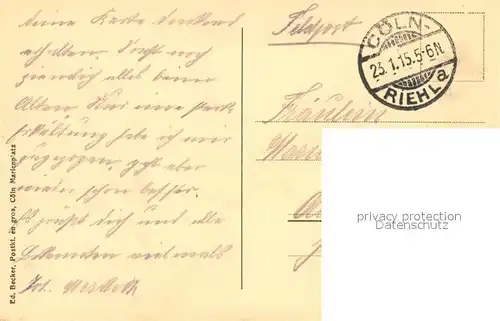 eine Karte dankend
erhalten. Sonst noch
ziemlich alles beim
Alten. Nur eine starke
Erkältung habe ich mir
zugezogen, geht aber
wieder schon besser.
Es grüßt Dich und alle
Bekannten vielmals
Feldpost
CÖLN-
23.1.15.5-6N.
RIEHL a
Fräulein
privacy protection
Datenschutz
Ed. Becker, Postkt. en gros, Cöln Marienplatz